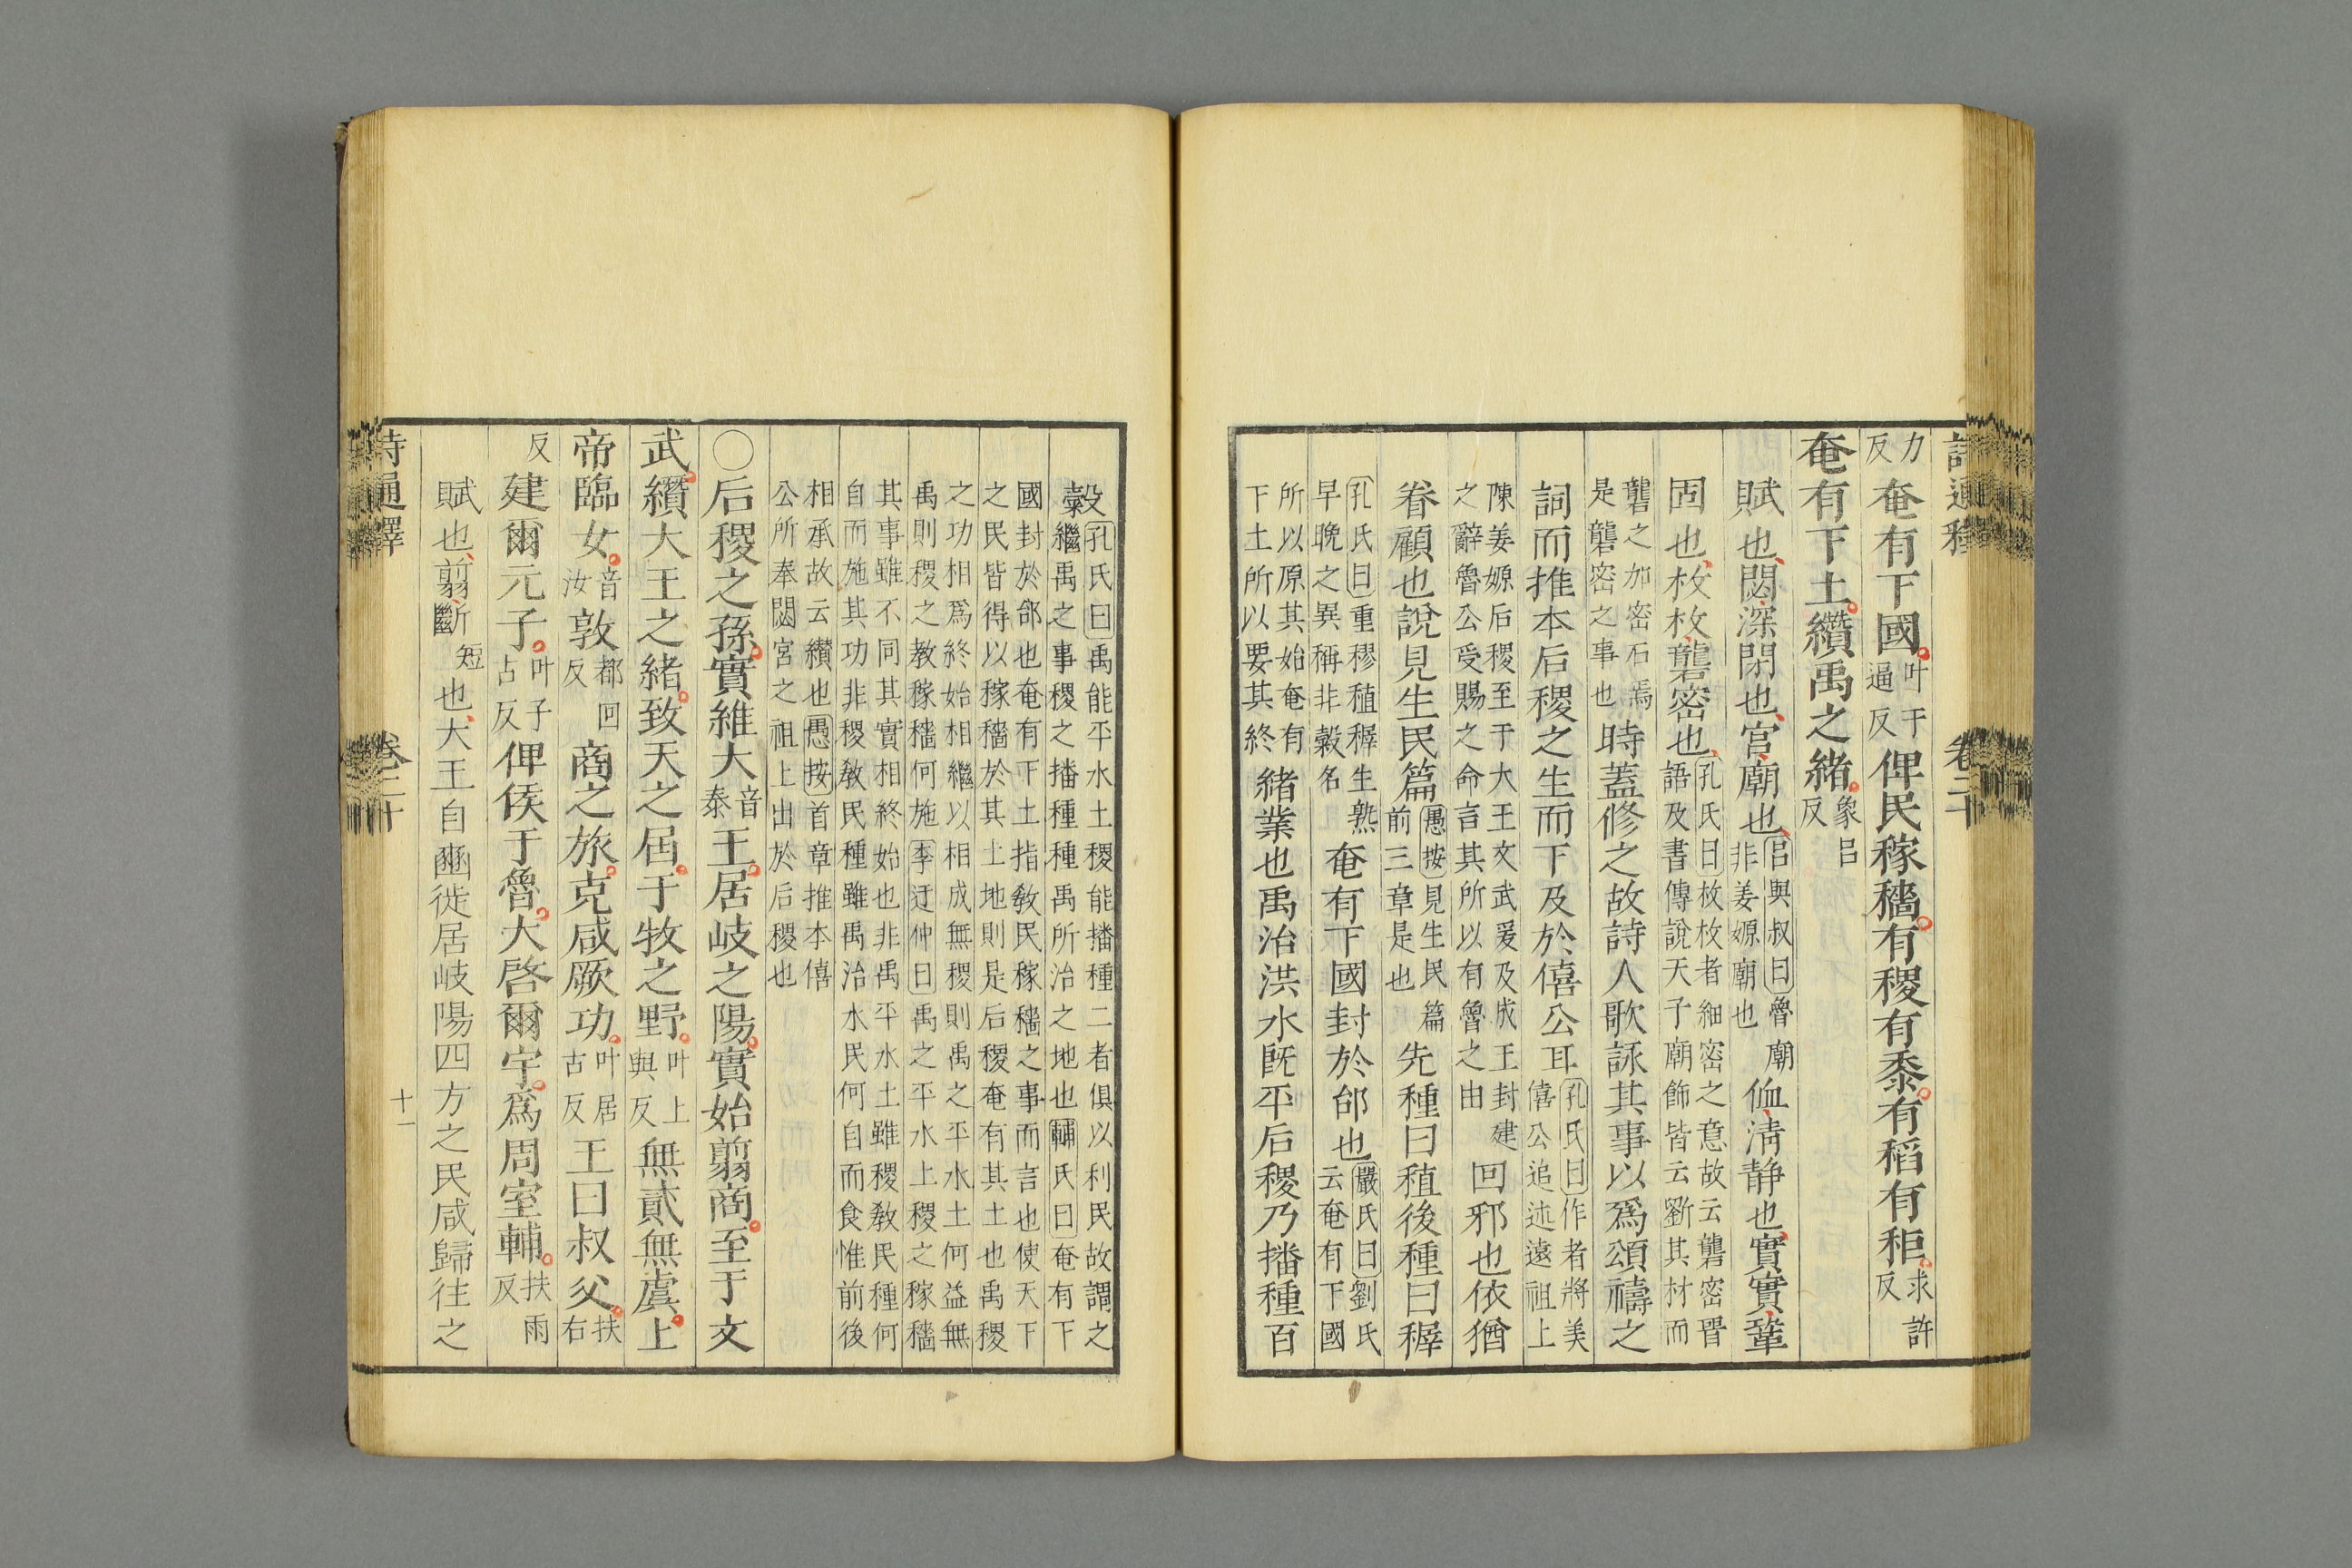 詩通釋 卷二十
力反奄有下國叶于逼反俾民稼穡有稷有黍有稻有秬求許反
奄有下土纘禹之緒象呂反
賦也閟深閉也宮廟也呂與叔曰魯廟非姜嫄廟也侐清静也實實鞏
固也枚枚礱密也孔氏曰枚枚者細密之意故云礱密晉語及書傳說天子廟飾皆云斲其材而
礱之加密石焉是礱密之事也時蓋修之故詩人歌詠其事以爲頌禱之
詞而推本后稷之生而下及於僖公耳孔氏曰作者將美僖公追述遠祖上
陳姜嫄后稷至于大王文武爰及成王封建之辭魯公受賜之命言其所以有魯之由回邪也依猶
眷顧也說見生民篇愚按見生民篇前三章是也先種曰稙後種曰穉
孔氏曰重穋稙穉生熟早晚之異稱非穀名奄有下國封於邰也嚴氏曰劉氏云奄有下國
所以原其始奄有下土所以要其終緒業也禹治洪水旣平后稷乃播種百
穀孔氏曰禹能平水土稷能播種二者俱以利民故謂之繼禹之事稷之播種種禹所治之地也輔氏曰奄有下
國封於邰也奄有下土指敎民稼穡之事而言也使天下之民皆得以稼穡於其土地則是后稷奄有其土也禹稷
之功相爲終始相繼以相成無稷則禹之平水土何益無禹則稷之敎稼穡何施李迂仲曰禹之平水上稷之稼穡
其事雖不同其實相終始也非禹平水土雖稷敎民種何自而施其功非稷敎民種雖禹治水民何自而食惟前後
相承故云纘也愚按首章推本僖公所奉閟宮之祖上出於后稷也
〇后稷之孫實維大音泰王居岐之陽實始翦商至于文
武纘大王之緒致天之屆于牧之野叶上與反無貳無虞上
帝臨女音汝敦都回反商之旅克咸厥功叶居古反王曰叔父扶右
反建爾元子叶子古反俾侯于魯大啓爾宇爲周室輔扶雨反
賦也翦斷短也大王自豳徙居岐陽四方之民咸歸往之
詩通釋 卷二十 十一